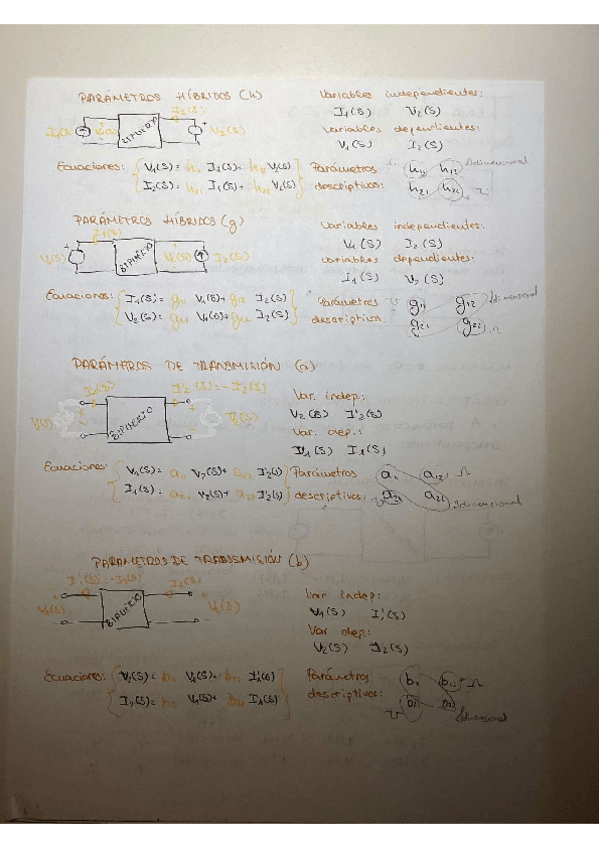 PARÁMETROS HÍBRIDOS (h)
Variables independientes:
I₁(S) V₂(S)
variables dependientes:
V₁(S) I₂(S)
I₂(S)
I₁(S) V₁(S) BIPUERTO V₂(S)
Ecuaciones: V₁(S) = h₁₁ I₁(S) + h₁₂ V₂(S)
I₂(S) = h₂₁ I₁(S) + h₂₂ V₂(S)
Parámetros descriptivos:
h₁₁ h₁₂ Adimensional
h₂₁ h₂₂
PARÁMETROS HÍBRIDOS (g)
Variables independientes:
V₁(S) I₂(S)
variables dependientes:
I₁(S) V₂(S)
I₁(S)
V₁(S) BIPUERTO V₂(S) I₂(S)
Ecuaciones: I₁(S) = g₁₁ V₁(S) + g₁₂ I₂(S)
V₂(S) = g₂₁ V₁(S) + g₂₂ I₂(S)
Parámetros descriptivos:
g₁₁ g₁₂ Adimensional
g₂₁ g₂₂ Ω
PARÁMETROS DE TRANSMISIÓN (a)
I₁(S) I'₂(S) = - I₂(S)
V₁(S) BIPUERTO V₂(S)
Var. indep:
V₂(S) I'₂(S)
Var. dep.:
V₁(S) I₁(S)
Ecuaciones: V₁(S) = a₁₁ V₂(S) + a₁₂ I'₂(S)
I₁(S) = a₂₁ V₂(S) + a₂₂ I'₂(S)
Parámetros descriptivos:
a₁₁ a₁₂ Ω
a₂₁ a₂₂ Adimensional
PARAMETROS DE TRANSMISIÓN (b)
I'₁(S) = - I₁(S) I₂(S)
V₁(S) BIPUERTO V₂(S)
Var indep:
V₁(S) I'₁(S)
Var dep:
V₂(S) I₂(S)
Ecuaciones: V₂(S) = b₁₁ V₁(S) + b₁₂ I'₁(S)
I₂(S) = b₂₁ V₁(S) + b₂₂ I'₁(S)
Parámetros descriptivos:
b₁₁ b₁₂ Ω
b₂₁ b₂₂ Adimensional